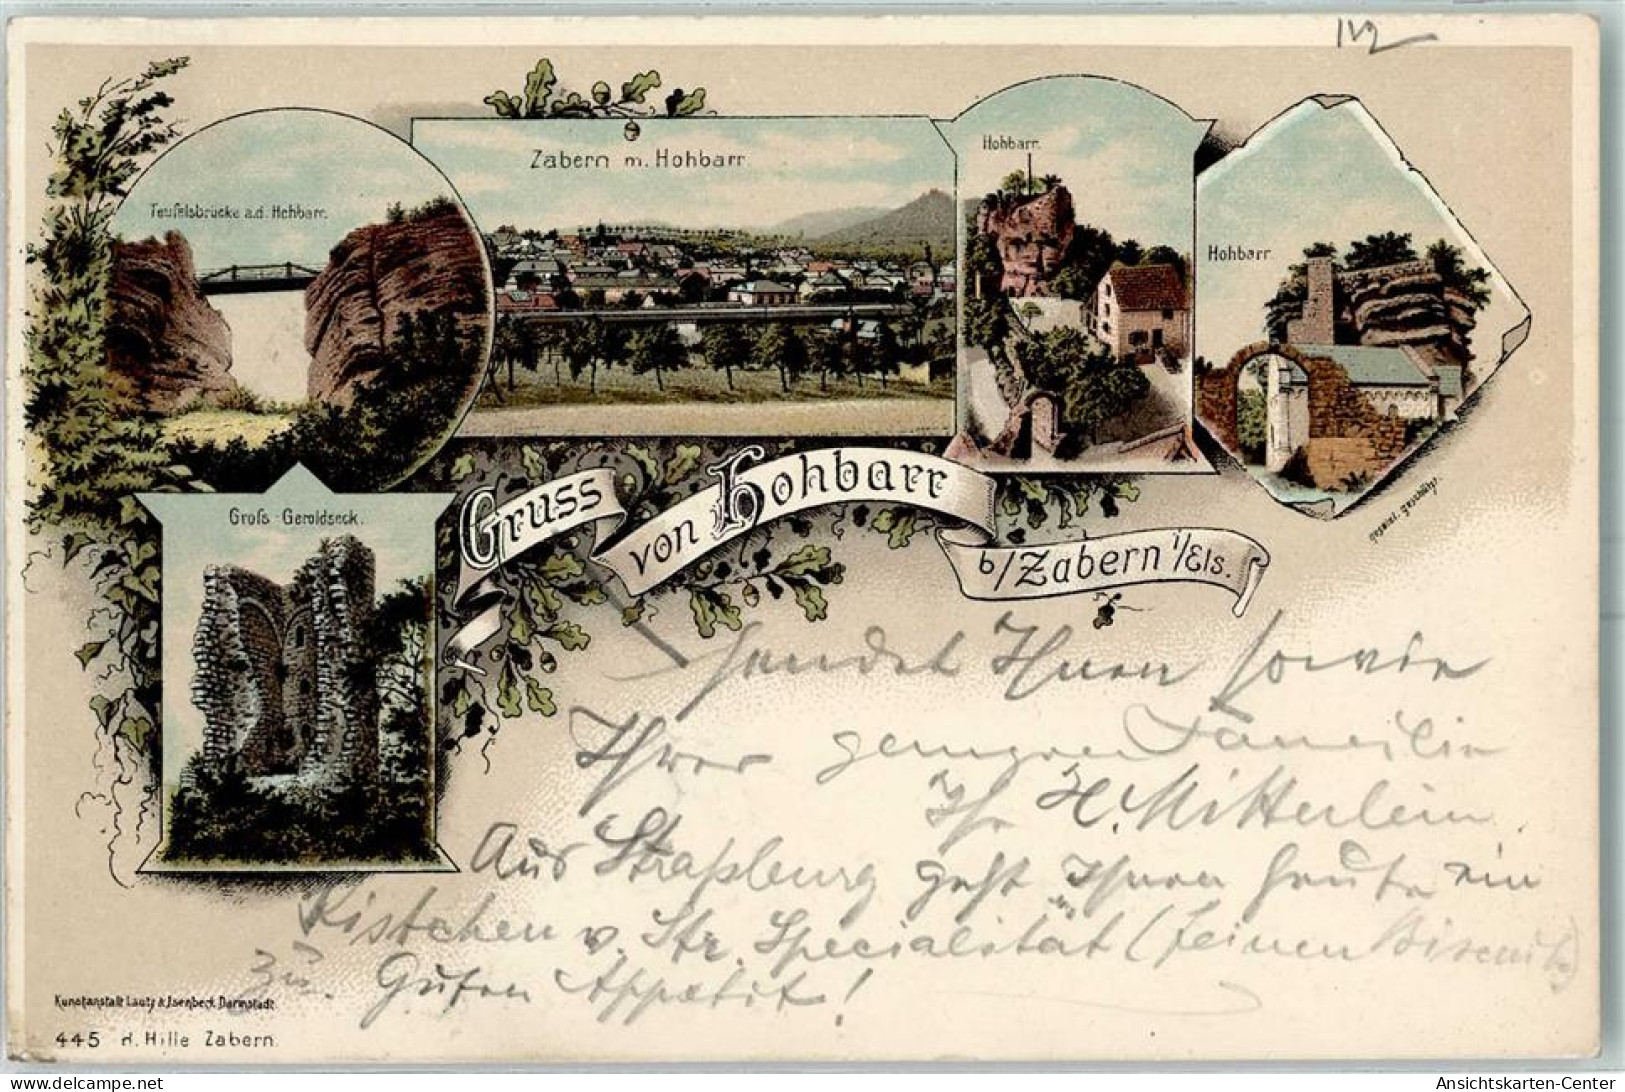 112
Teufelsbrücke a.d. Hohbarr.
Zabern m. Hohbarr.
Hohbarr.
Hohbarr.
Gross-Geroldseck.
Gruss von Hohbarr b/Zabern i/Els.
gesetzl. geschützt.
sendet Ihnen sowie
Ihrer Familie
Ihr H. Mitterlein.
Aus Straßburg geht Ihnen heute ein
Kistchen v. Str. Specialität (feinen Biscuits)
zu. Guten Appetit!
Kunstanstalt Lautz & Isenbeck Darmstadt.
445 H. Hille Zabern.
delcampe.net
Ansichtskarten-Center